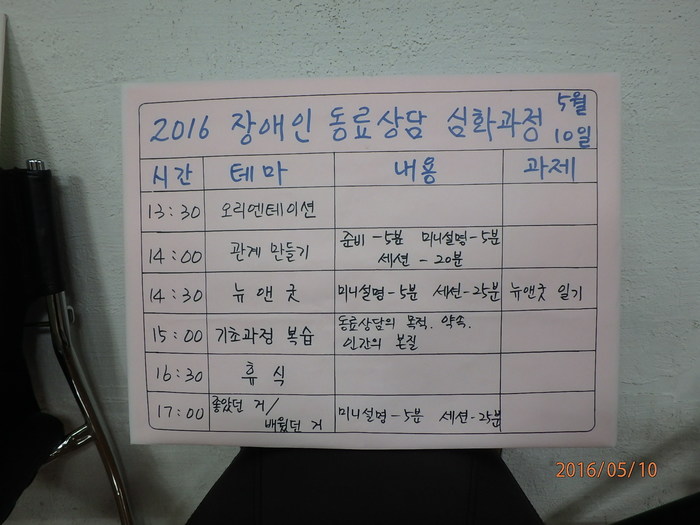 2016 장애인 동료상담 심화과정 5월 10일
시간 테마 내용 과제
13:30 오리엔테이션
14:00 관계 만들기 준비-5분 미니설명-5분
세션-20분
14:30 뉴앤굿 미니설명-5분 세션-25분 뉴앤굿 일기
15:00 기초과정 복습 동료상담의 목적. 약속.
인간의 본질
16:30 휴식
17:00 좋았던 거/ 미니설명-5분 세션-25분
배웠던 거
2016/05/10